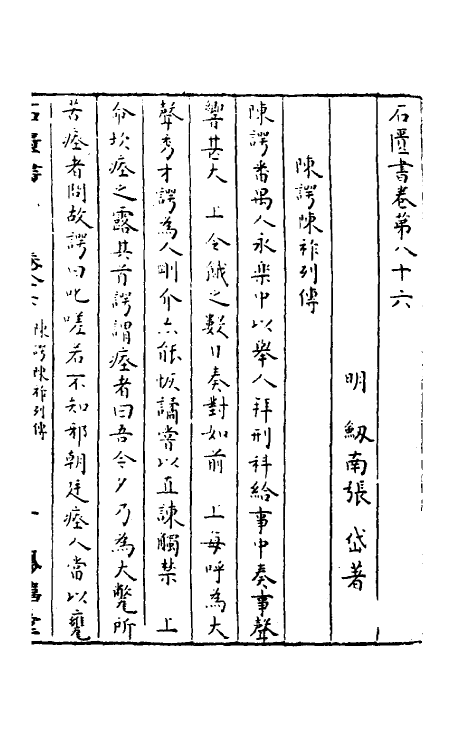 石匱書卷第八十六
明 劔南張 岱著
陳諤陳祚列傳
陳諤番禺人永樂中以舉人拜刑科給事中奏事聲
響甚大 上令餓之數日奏對如前 上每呼為大
聲秀才諤為人剛介亦能恢譎嘗以直諫觸禁 上
命坎瘞之露其首諤謂瘞者曰吾今夕乃為大甕所
苦瘞者問故諤曰叱嗟若不知邪朝廷瘞人當以甕
石匱書 卷 陳諤陳祚列傳 一 鳳嬉堂